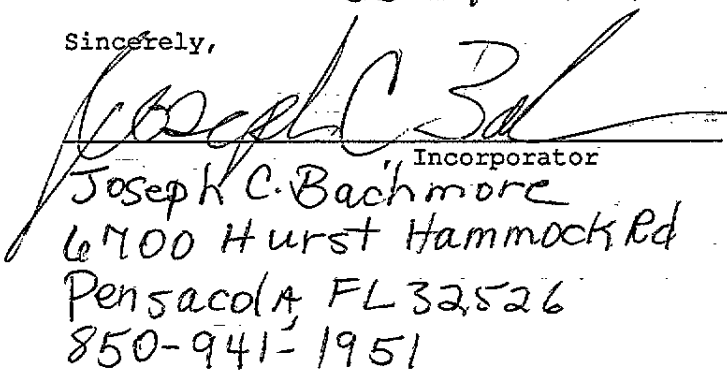 Sincerely,
Joseph C Ba
, Incorporator
Joseph C. Bachmore
6700 Hurst Hammock Rd
Pensacola, FL 32526
850-941-1951